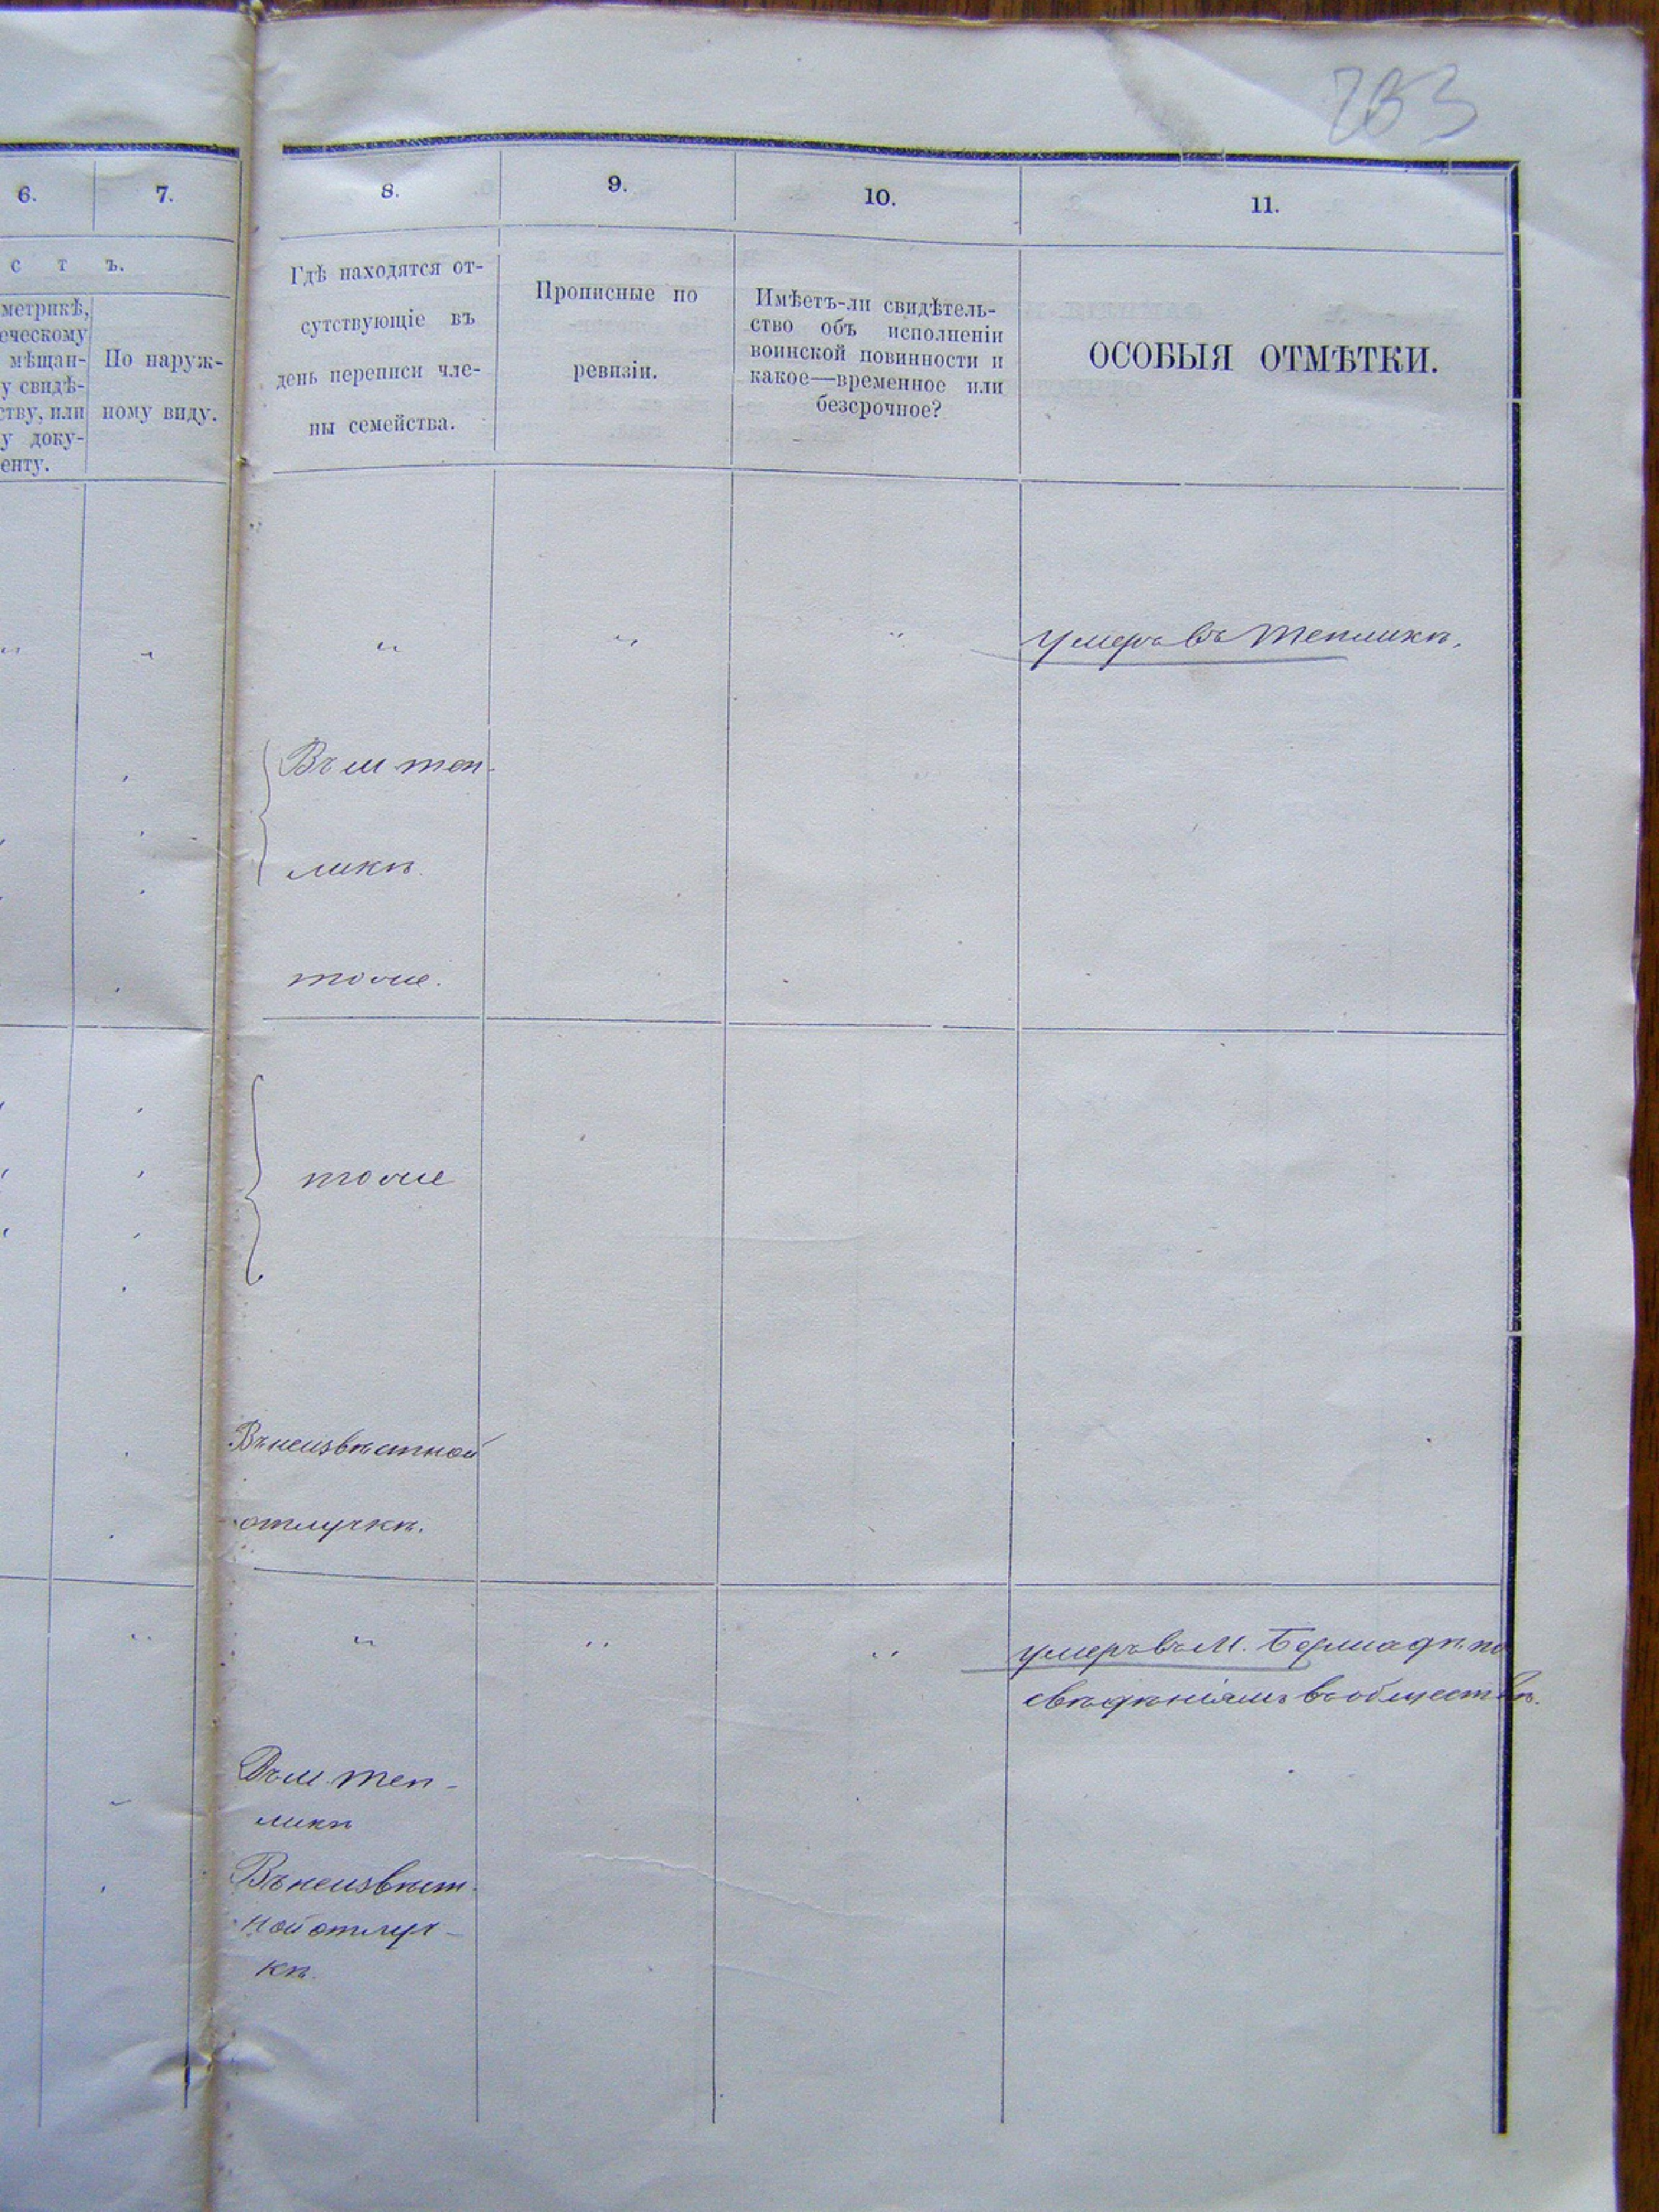 203
6.
7.
8.
9.
10.
11.
с т ъ.
метрикѣ,
еческому
мѣщан-
у свидѣ-
ству, или
у доку-
енту.
По наруж-
ному виду.
Гдѣ находятся от-
сутствующіе въ
день переписи чле-
ны семейства.
Прописные по
ревизіи.
Имѣетъ-ли свидѣтель-
ство объ исполненіи
воинской повинности и
какое—временное или
безсрочное?
ОСОБЫЯ ОТМѢТКИ.
" " " " " умеръ въ Тепликѣ.
Въ м Теп-
ликѣ.
тоже.
тоже
Въ неизвѣстной
отлучкѣ.
" " " " умеръ въ м. Бершадѣ по
свѣдѣніямъ въ обществѣ.
Въ м. Теп-
ликѣ
Въ неизвѣст-
ной отлуч-
кѣ.